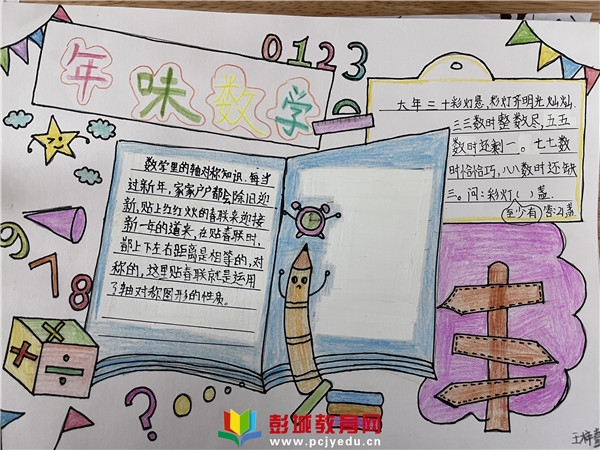 年味数学
0123
大年三十彩灯悬,彩灯齐明光灿灿.
三三数时整数尽,五五
数时还剩一。七七数
时恰恰巧,八八数时还缺
三。问:彩灯( )盏.
至少有 答:21盏
数学里的轴对称知识.每当
过新年,家家户户都会除旧迎
新,贴上红红火火的春联来迎接
新一年的道来,在贴春联时,
都上下左右距离是相等的,对
称的,这里贴春联就是运用
了轴对称图形的性质。
9
7
8
+
×
÷
?
彭城教育网
www.pcjyedu.cn
王梓